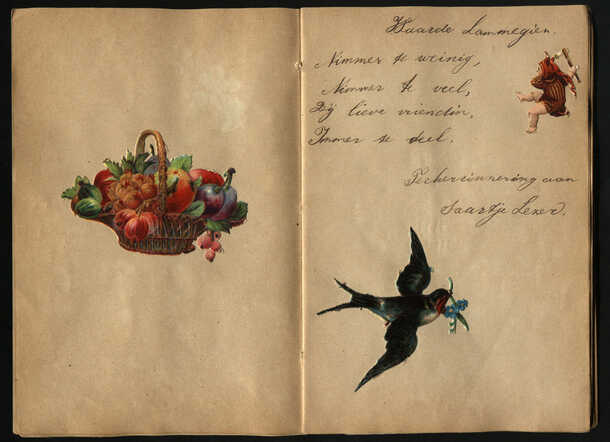 Waarde Lammegien.
Nimmer te weinig,
Nimmer te veel,
Zij lieve vriendin,
Immer te deel.
Ter herinnering aan
Saartje Lezer.